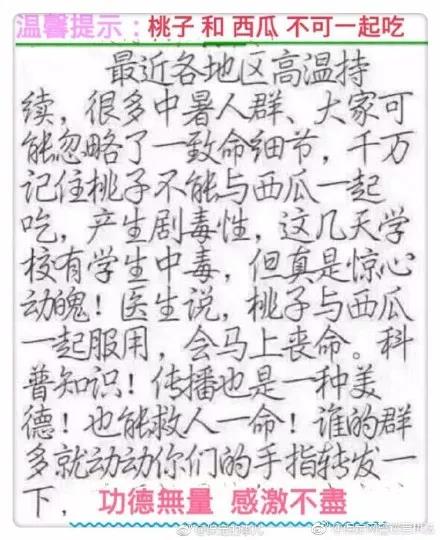 温馨提示:桃子 和 西瓜 不可一起吃
最近各地区高温持
续，很多中暑人群、大家可
能忽略了一致命细节，千万
记住桃子不能与西瓜一起
吃，产生剧毒性，这几天学
校有学生中毒，但真是惊心
动魄！医生说，桃子与西瓜
一起服用，会马上丧命。科
普知识！传播也是一种美
德！也能救人一命！谁的群
多就动动你们的手指转发一
下，功德無量 感激不盡